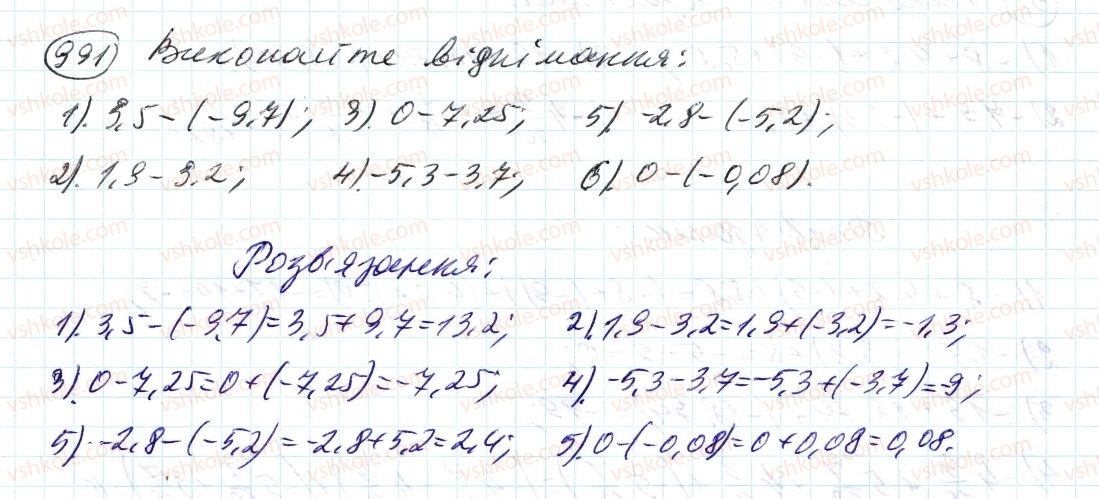 991) Виконайте віднімання:
1). 3,5-(-9,7); 3). 0-7,25; 5). -2,8-(-5,2);
2). 1,9-3,2; 4). -5,3-3,7; 6). 0-(-0,08).
Розв'язання:
1). 3,5-(-9,7)=3,5+9,7=13,2; 2). 1,9-3,2=1,9+(-3,2)=-1,3;
3). 0-7,25=0+(-7,25)=-7,25; 4). -5,3-3,7=-5,3+(-3,7)=-9;
5). -2,8-(-5,2)=-2,8+5,2=2,4; 5). 0-(-0,08)=0+0,08=0,08.